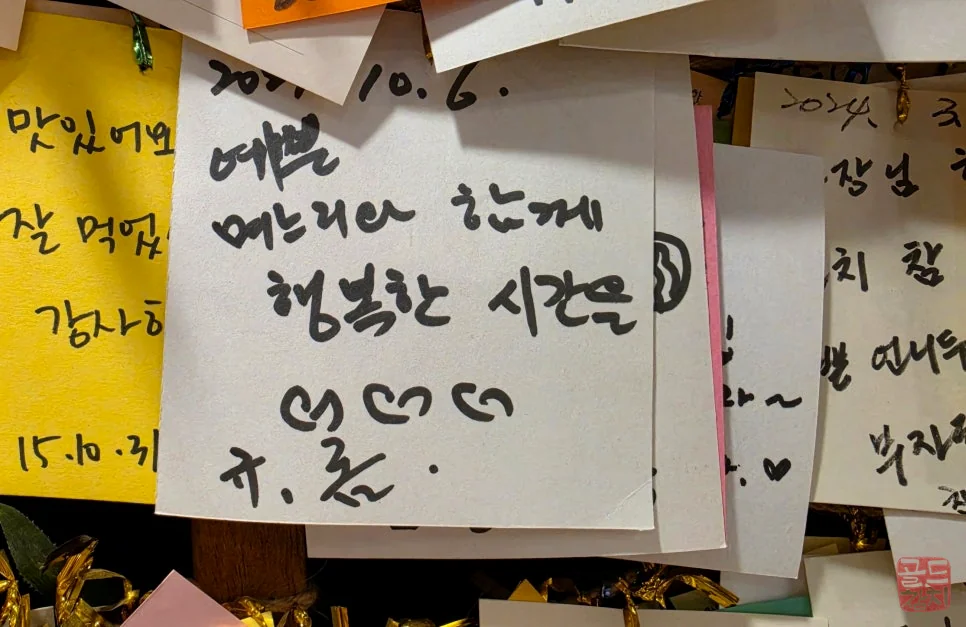 맛있어요
잘 먹었
감사하
15.10.31
10.6.
예쁜
며느리와 함께
행복한 시간을
♡♡♡
2024. 3
장님
치 참
언니두
부자
♥
골드